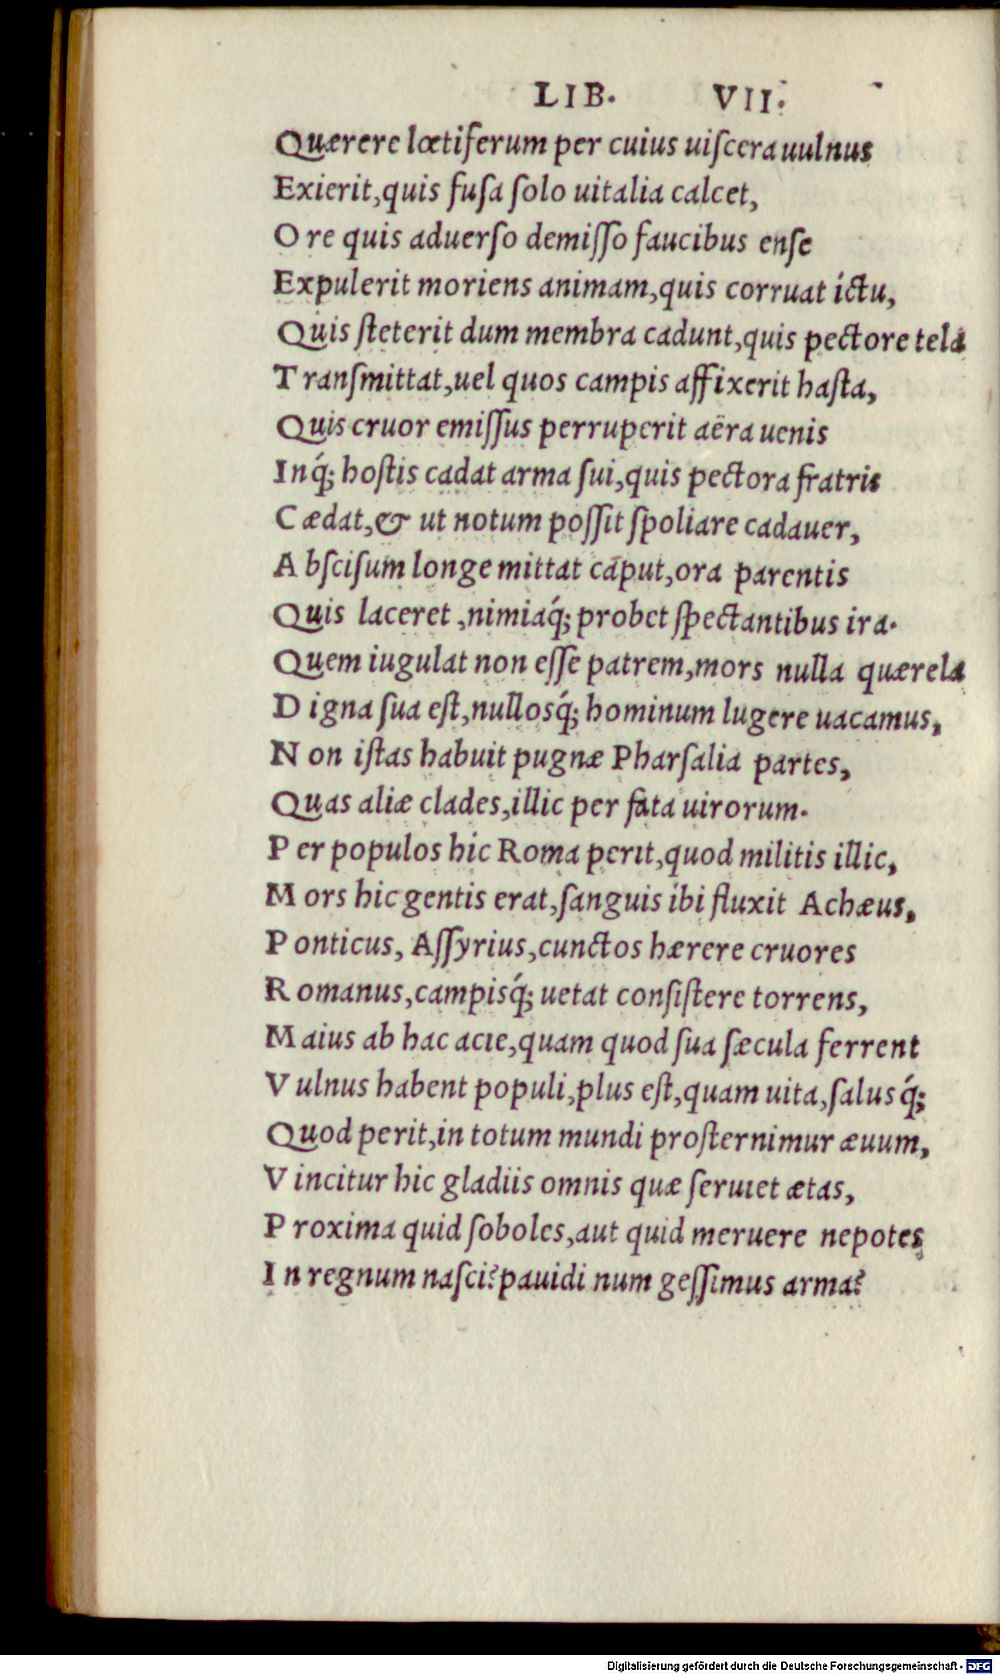 LIB. VII.
Quærere lœtiferum per cuius uiſcera uulnus
Exierit,quis fuſa ſolo uitalia calcet,
Ore quis aduerſo demiſſo faucibus enſe
Expulerit moriens animam,quis corruat ictu,
Quis ſteterit dum membra cadunt,quis pectore tela
Tranſmittat,uel quos campis affixerit haſta,
Quis cruor emiſſus perruperit aëra uenis
Inq́; hoſtis cadat arma ſui,quis pectora fratris
Cædat,& ut notum poſſit ſpoliare cadauer,
Abſciſum longe mittat caput,ora parentis
Quis laceret ,nimiaq́; probet ſpectantibus ira.
Quem iugulat non eſſe patrem,mors nulla quærela
Digna ſua eſt,nullosq́; hominum lugere uacamus,
Non iſtas habuit pugnæ Pharſalia partes,
Quas aliæ clades,illic per fata uirorum.
Per populos hic Roma perit,quod militis illic,
Mors hic gentis erat,ſanguis ibi fluxit Achæus,
Ponticus, Aſſyrius,cunctos hærere cruores
Romanus,campisq́; uetat conſiſtere torrens,
Maius ab hac acie,quam quod ſua ſæcula ferrent
Vulnus habent populi,plus eſt,quam uita,ſalus q́;
Quod perit,in totum mundi proſternimur æuum,
Vincitur hic gladiis omnis quæ ſeruiet ætas,
Proxima quid ſoboles,aut quid meruere nepotes
In regnum naſci?pauidi num geſſimus arma?
Digitalisierung gefördert durch die Deutsche Forschungsgemeinschaft - DFG